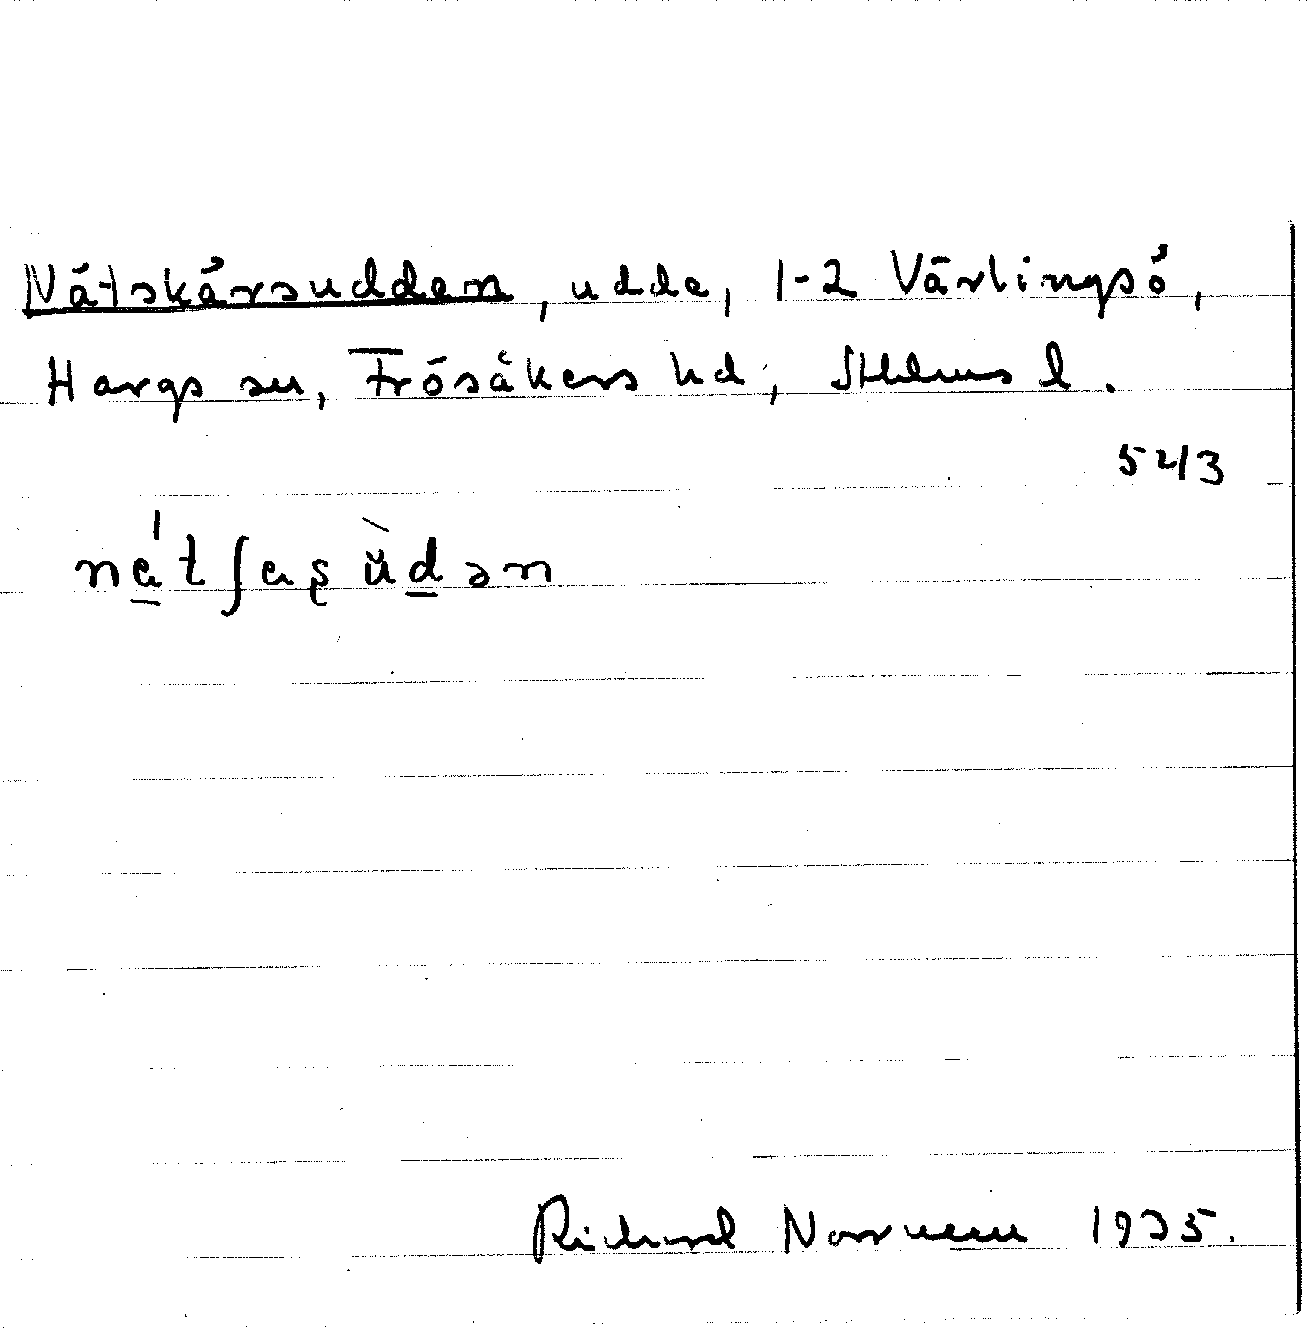 Nätskärsudden, udde, 1-2 Värlingsö,
Hargs sn, Frösåkers hd, Sthlms l.
5213
nétʃɐʂ ŭ̀dən
Richard Norrman 1935.